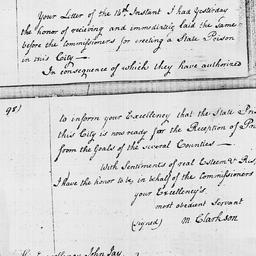 Your Letter of the 18th Instant I had Yesterday
the honor of recieving and immediately laid the Same
before the Commissioners for erecting a State Prison
in this City —
In consequence of which they have authorized
98)
to inform your Excellency that the State
this City is now ready for the Reception of
from the Goals of the several Counties —
With Sentiments of real Esteem &
I have the honor to be, in behalf of the Commissioners
your Excellency's
most obedient Servant
(signed) M. Clarkson
John Jay